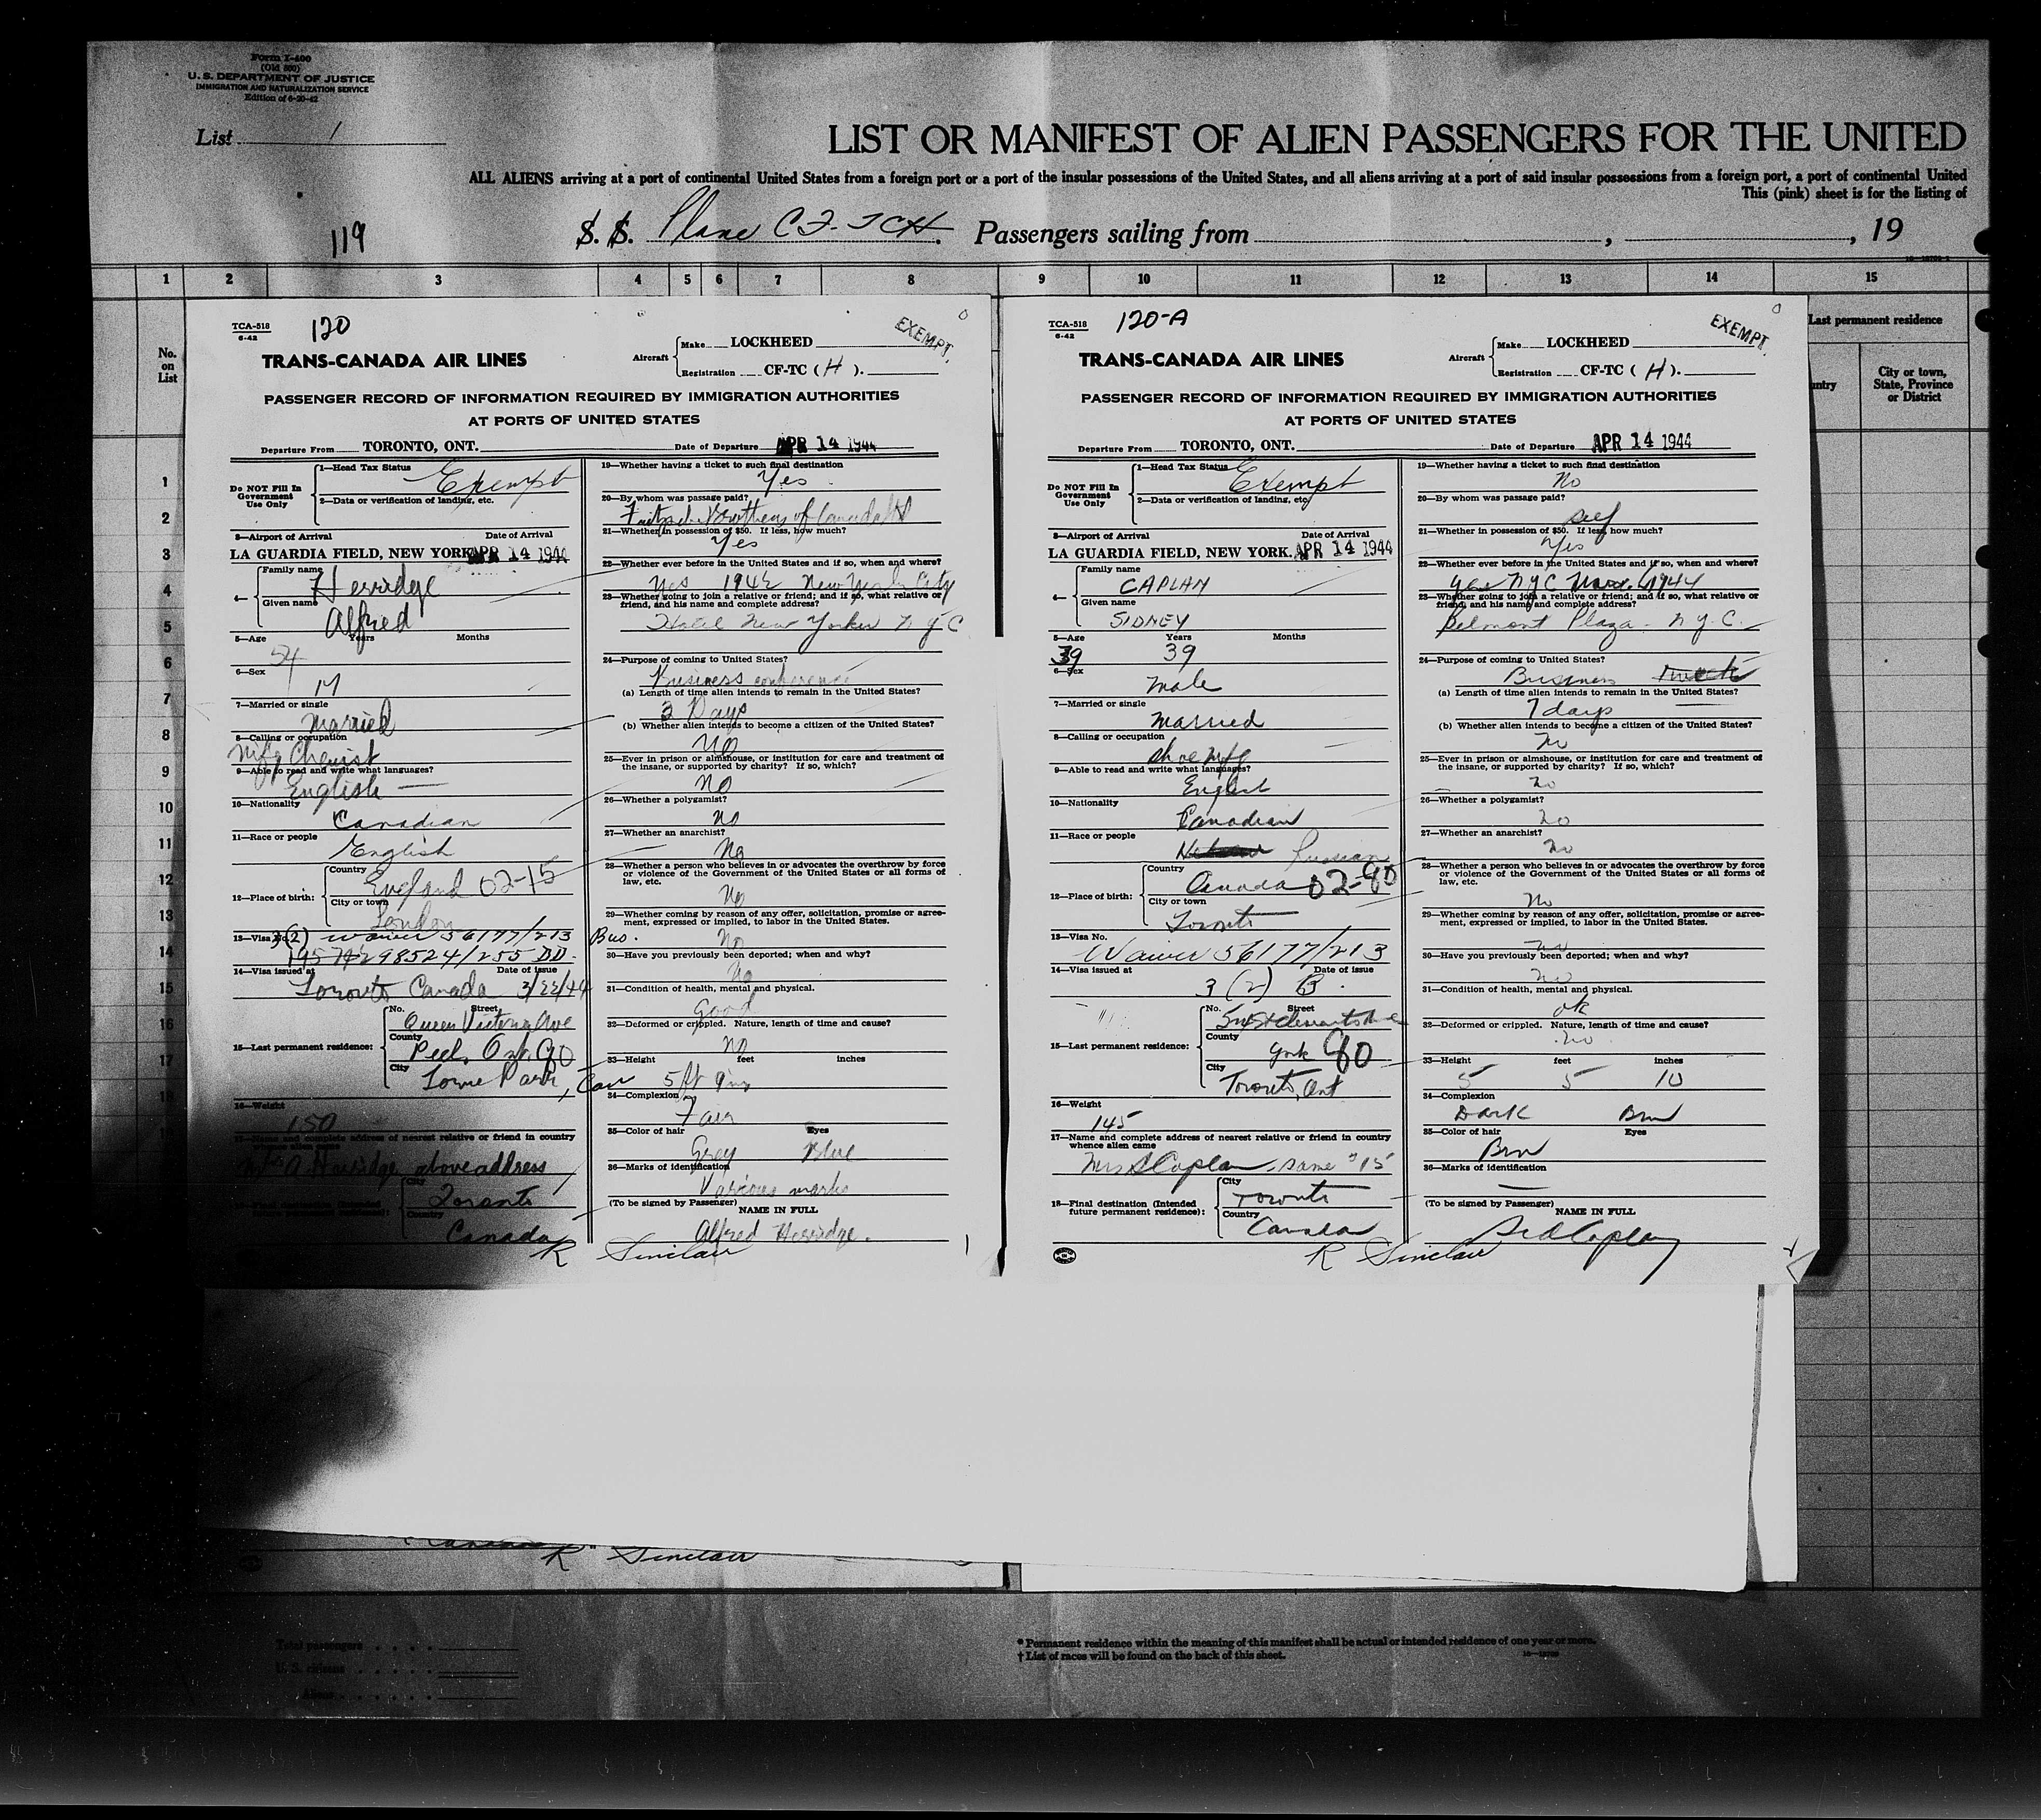 Form I-400
(Old 500)
U. S. DEPARTMENT OF JUSTICE
IMMIGRATION AND NATURALIZATION SERVICE
Edition of 6-20-42
List 1
LIST OR MANIFEST OF ALIEN PASSENGERS FOR THE UNITED
ALL ALIENS arriving at a port of continental United States from a foreign port or a port of the insular possessions of the United States, and all aliens arriving at a port of said insular possessions from a foreign port, a port of continental United
This (pink) sheet is for the listing of
119
S. S. Plane CF-TCH. Passengers sailing from , , 19
1 2 3 4 5 6 7 8 9 10 11 12 13 14 15
No.
on
List
Last permanent residence
untry
City or town,
State, Province
or District
1
2
3
4
5
6
7
8
9
10
11
12
13
14
15
16
17
18
TCA-518
6-42
120
EXEMPT.
TRANS-CANADA AIR LINES
Aircraft
Make LOCKHEED
Registration CF-TC ( H ).
PASSENGER RECORD OF INFORMATION REQUIRED BY IMMIGRATION AUTHORITIES
AT PORTS OF UNITED STATES
Departure From TORONTO, ONT. Date of Departure APR 14 1944
Do NOT Fill In
Government
Use Only
1—Head Tax Status Exempt
2—Data or verification of landing, etc.
3—Airport of Arrival Date of Arrival
LA GUARDIA FIELD, NEW YORK APR 14 1944
4—
Family name Herridge
Given name Alfred
5—Age Years Months
54
6—Sex
M
7—Married or single
Married
8—Calling or occupation
Mfg Chemist
9—Able to read and write what languages?
English
10—Nationality
Canadian
11—Race or people
English
12—Place of birth:
Country
England 02-15
City or town
London
13—Visa No.
3(2) Waiver 56177/213 Bus.
298524/255 DD.
14—Visa issued at Date of issue
Toronto Canada 3/22/44
15—Last permanent residence:
No. Street
Queen Victoria Ave
County
Peel, Ont. 90
City
Lorne Park, Can
16—Weight
150
17—Name and complete address of nearest relative or friend in country
whence alien came
Mrs A. Herridge above address
18—Final destination (Intended
future permanent residence):
City
Toronto
Country
Canada
19—Whether having a ticket to such final destination
Yes
20—By whom was passage paid?
Fritzsche Brothers of Canada Ltd
21—Whether in possession of $50. If less, how much?
Yes
22—Whether ever before in the United States and if so, when and where?
Yes 1942 New York City
23—Whether going to join a relative or friend; and if so, what relative or
friend, and his name and complete address?
Hotel New Yorker N Y C
24—Purpose of coming to United States?
Business conference
(a) Length of time alien intends to remain in the United States?
3 Days
(b) Whether alien intends to become a citizen of the United States?
No
25—Ever in prison or almshouse, or institution for care and treatment of
the insane, or supported by charity? If so, which?
No
26—Whether a polygamist?
No
27—Whether an anarchist?
No
28—Whether a person who believes in or advocates the overthrow by force
or violence of the Government of the United States or all forms of
law, etc.
No
29—Whether coming by reason of any offer, solicitation, promise or agree-
ment, expressed or implied, to labor in the United States.
No
30—Have you previously been deported; when and why?
No
31—Condition of health, mental and physical.
Good
32—Deformed or crippled. Nature, length of time and cause?
No
33—Height feet inches
5 ft 9 ins
34—Complexion
Fair
35—Color of hair Eyes
Grey Blue
36—Marks of identification
Various marks
(To be signed by Passenger)
NAME IN FULL
Alfred Herridge.
R Sinclair
TCA-518
6-42
120-A
EXEMPT.
TRANS-CANADA AIR LINES
Aircraft
Make LOCKHEED
Registration CF-TC ( H ).
PASSENGER RECORD OF INFORMATION REQUIRED BY IMMIGRATION AUTHORITIES
AT PORTS OF UNITED STATES
Departure From TORONTO, ONT. Date of Departure APR 14 1944
Do NOT Fill In
Government
Use Only
1—Head Tax Status Exempt
2—Data or verification of landing, etc.
3—Airport of Arrival Date of Arrival
LA GUARDIA FIELD, NEW YORK. APR 14 1944
4—
Family name
CAPLAN
Given name
SIDNEY
5—Age Years Months
39 39
6—Sex
Male
7—Married or single
Married
8—Calling or occupation
Shoe Mfg
9—Able to read and write what languages?
English
10—Nationality
Canadian
11—Race or people
Russian
12—Place of birth:
Country
Canada 02-90
City or town
Toronto
13—Visa No.
Waiver 56177/213
14—Visa issued at Date of issue
3 (2) B.
15—Last permanent residence:
No. Street
County
York 90
City
Toronto, Ont
16—Weight
145
17—Name and complete address of nearest relative or friend in country
whence alien came
Mrs S Caplan, same #15
18—Final destination (Intended
future permanent residence):
City
Toronto
Country
Canada
19—Whether having a ticket to such final destination
No
20—By whom was passage paid?
Self
21—Whether in possession of $50. If less, how much?
Yes
22—Whether ever before in the United States and if so, when and where?
Yes NYC Mar. 1944
23—Whether going to join a relative or friend; and if so, what relative or
friend, and his name and complete address?
Belmont Plaza - N.Y.C.
24—Purpose of coming to United States?
Business
(a) Length of time alien intends to remain in the United States?
7 days
(b) Whether alien intends to become a citizen of the United States?
No
25—Ever in prison or almshouse, or institution for care and treatment of
the insane, or supported by charity? If so, which?
No
26—Whether a polygamist?
No
27—Whether an anarchist?
No
28—Whether a person who believes in or advocates the overthrow by force
or violence of the Government of the United States or all forms of
law, etc.
No
29—Whether coming by reason of any offer, solicitation, promise or agree-
ment, expressed or implied, to labor in the United States.
No
30—Have you previously been deported; when and why?
No
31—Condition of health, mental and physical.
ok
32—Deformed or crippled. Nature, length of time and cause?
No
33—Height feet inches
5 5 10
34—Complexion
Dark Brn
35—Color of hair Eyes
Brn
36—Marks of identification
—
(To be signed by Passenger)
NAME IN FULL
Sid Caplan
R Sinclair
R Sinclair
Total passengers
U. S. citizens
Aliens
* Permanent residence within the meaning of this manifest shall be actual or intended residence of one year or more.
† List of races will be found on the back of this sheet.